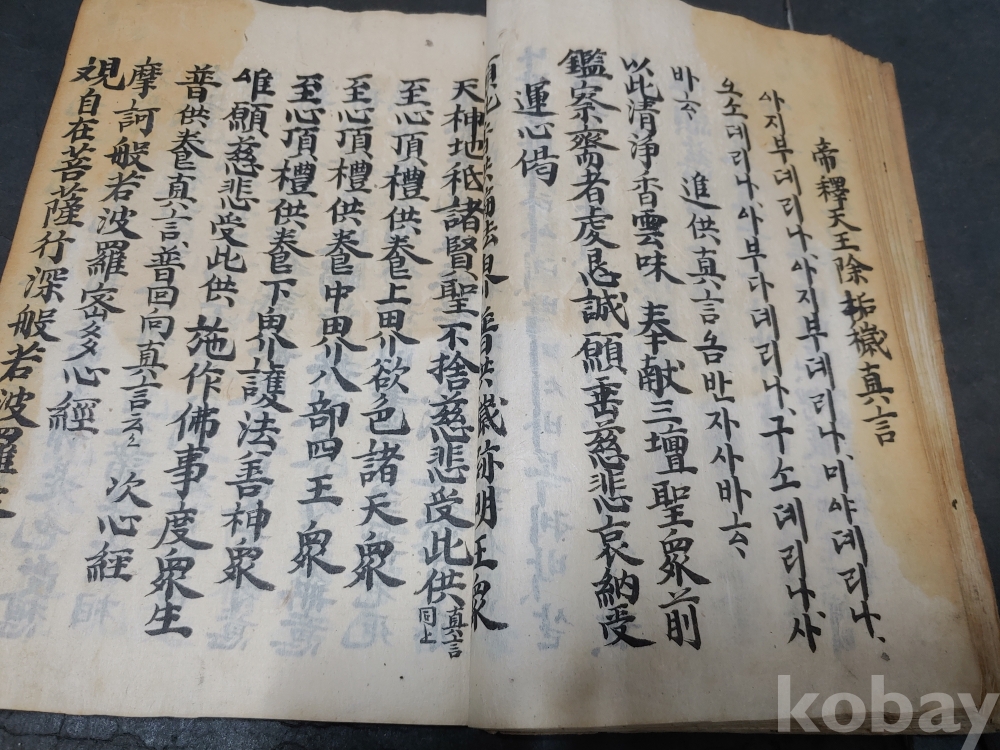 帝釋天王除垢穢真言
아지부데리나、아지부데리나、미야데리나、
오소데리나、아부다데리나、구소데리나사、
바ᄒᆞ、 進供真言 옴반자사바ᄒᆞ、
以此清淨香雲味 奉献三壇聖衆前
鑑察齋者虔恳誠 願垂慈悲哀納受
運心偈
明王衆
天神地祇諸賢聖不捨慈悲受此供 真言同上
至心頂禮供養上界欲色諸天衆
至心頂禮供養中界八部四王衆
至心頂禮供養下界護法善神衆
唯願慈悲受此供 施作佛事度衆生
普供養真言 普回向真言云云 次心經
摩訶般若波羅密多心經
観自在菩薩行深般若波羅
kobay